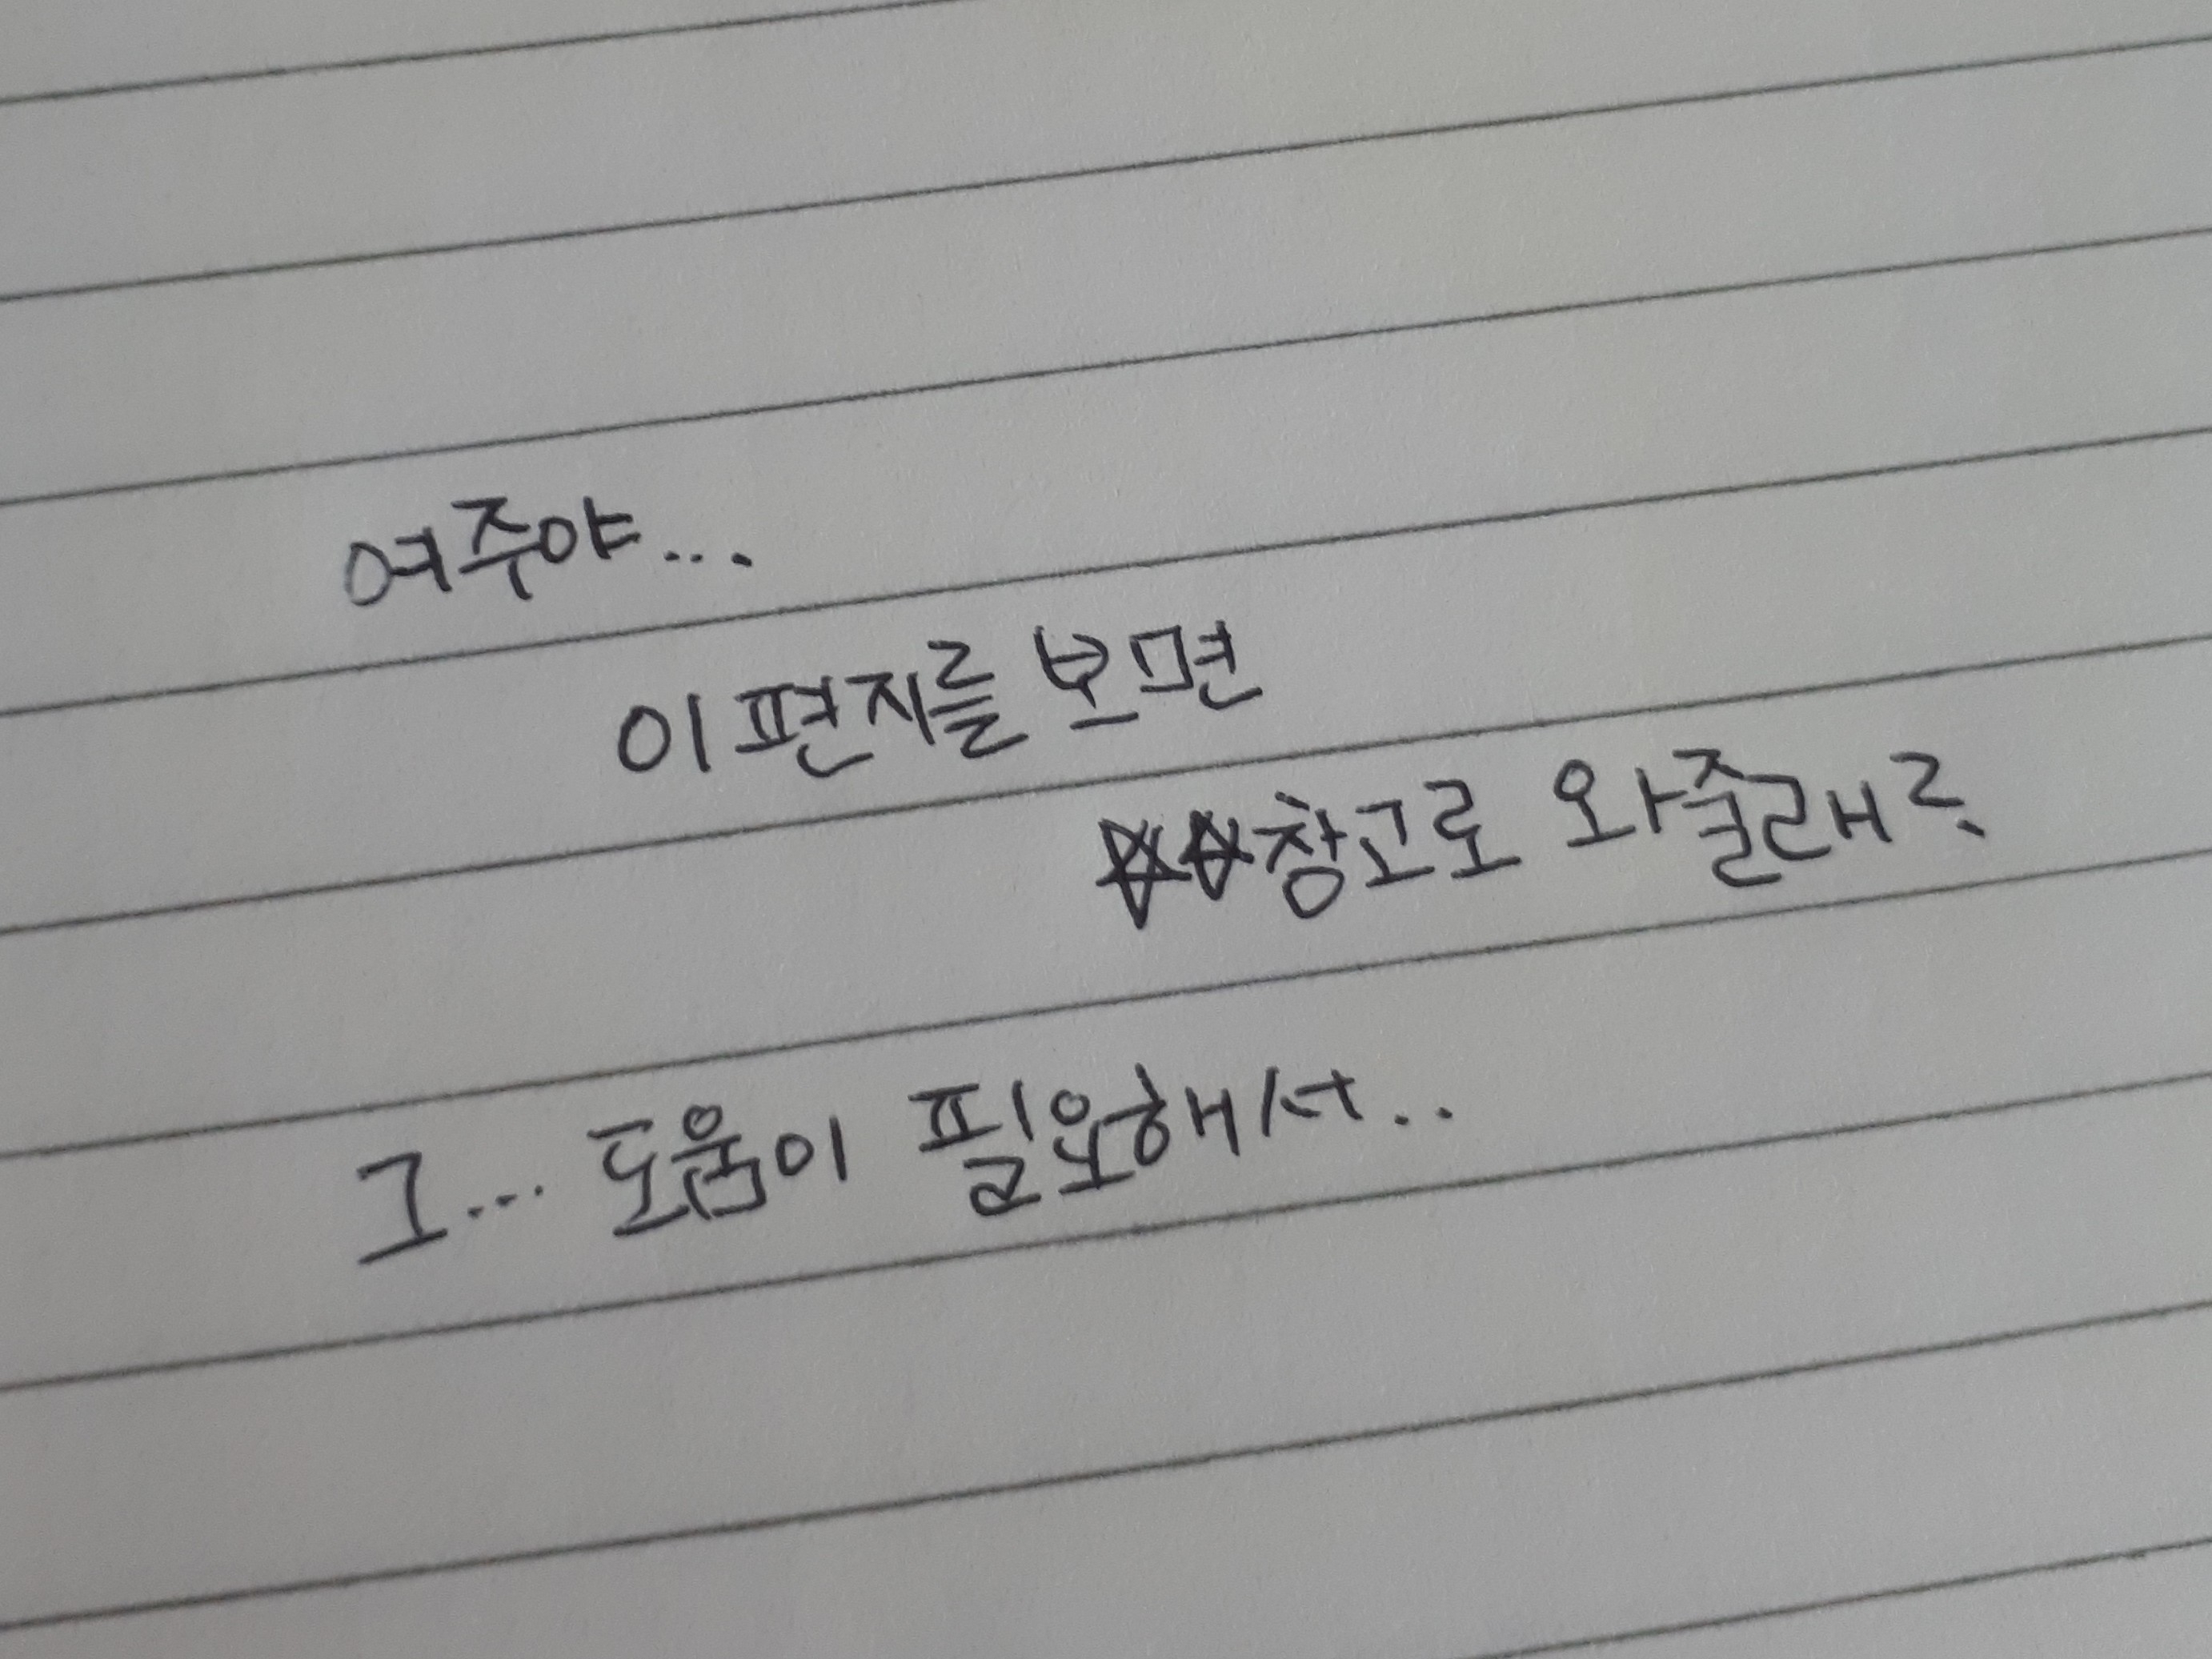 여주야...
이 편지를 보면
☆☆창고로 와줄래?
그... 도움이 필요해서..